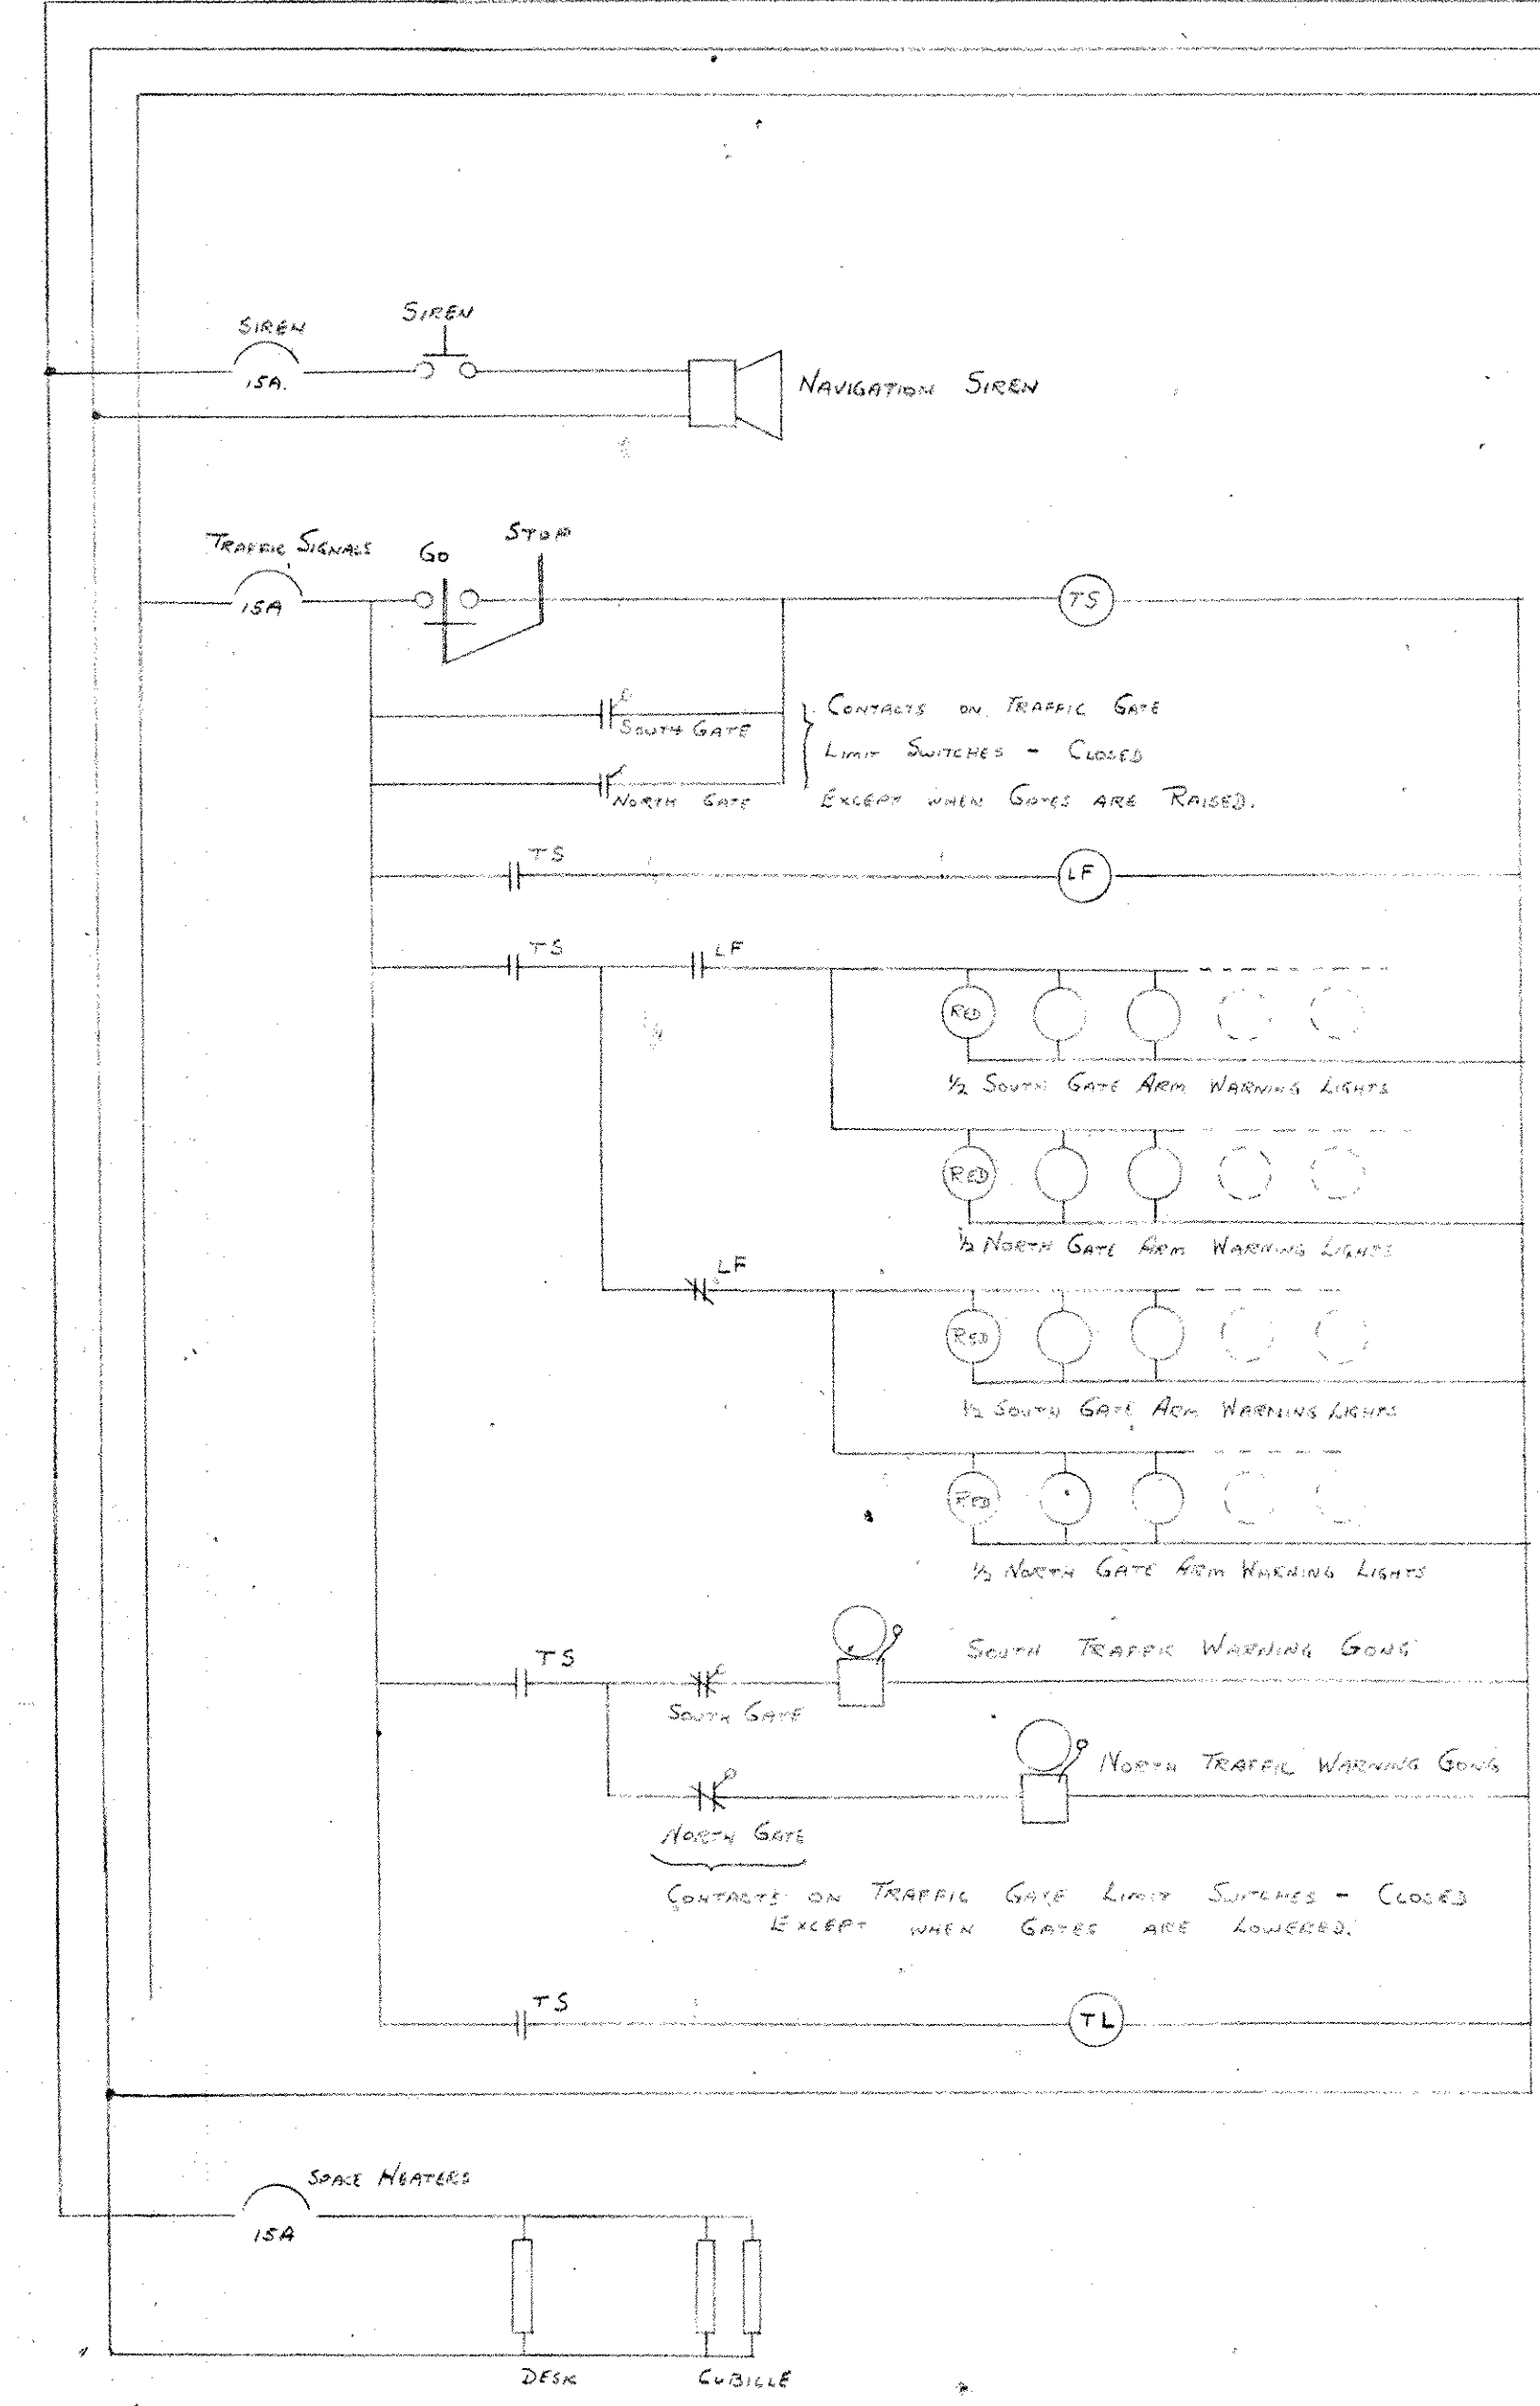 SIREN
SIREN
15A.
NAVIGATION SIREN
STOP
TRAFFIC SIGNALS
GO
15A
TS
SOUTH GATE
CONTACTS ON TRAFFIC GATE
LIMIT SWITCHES - CLOSED
EXCEPT WHEN GATES ARE RAISED.
NORTH GATE
TS
LF
TS
LF
RED
1/2 SOUTH GATE ARM WARNING LIGHTS
RED
1/2 NORTH GATE ARM WARNING LIGHTS
LF
RED
1/2 SOUTH GATE ARM WARNING LIGHTS
RED
1/2 NORTH GATE ARM WARNING LIGHTS
TS
SOUTH TRAFFIC WARNING GONG
SOUTH GATE
NORTH TRAFFIC WARNING GONG
NORTH GATE
CONTACTS ON TRAFFIC GATE LIMIT SWITCHES - CLOSED
EXCEPT WHEN GATES ARE LOWERED.
TS
TL
SPACE HEATERS
15A
DESK
CUBICLE